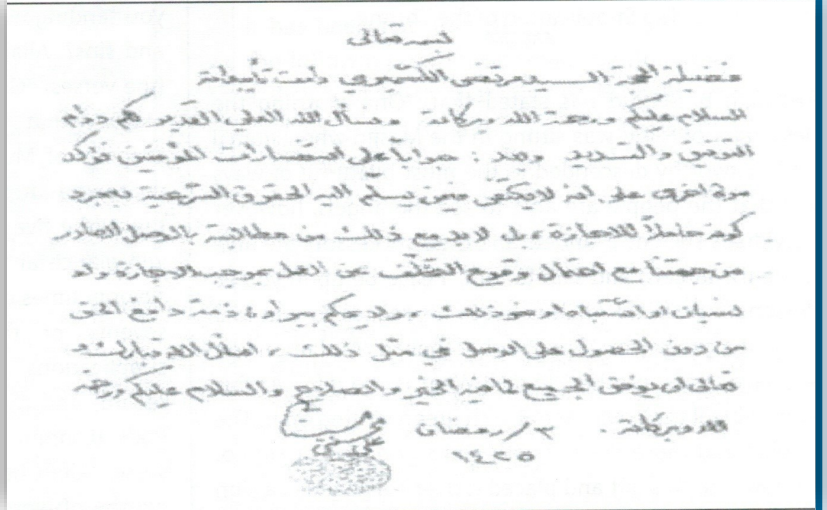 بسمه تعالى
فضيلة الحجة السيد مرتضى الكشميري دامت تأييداته
السلام عليكم ورحمة الله وبركاته ونسأل الله العلي القدير لكم دوام
التوفيق والتسديد وبعد : جواباً على استفسارات المؤمنين نؤكد
مرة اخرى على انه لا يكتفى فيمن يسلّم اليه الحقوق الشرعية بمجرد
كونه حاملاً للاجازة ، بل لابد مع ذلك من مطالبته بالوصل الصادر
من جهتنا مع احتمال وقوع التخلّف عن العمل بموجب الاجازة ولو
لنسيان او اشتباه او نحو ذلك ، ولا يحكم ببراءة ذمة دافع الحق
من دون الحصول على الوصل في مثل ذلك ، اسأل الله تبارك و
تعالى ان يوفق الجميع لما فيه الخير والصلاح والسلام عليكم ورحمة
الله وبركاته . ٣/رمضان
١٤٢٥